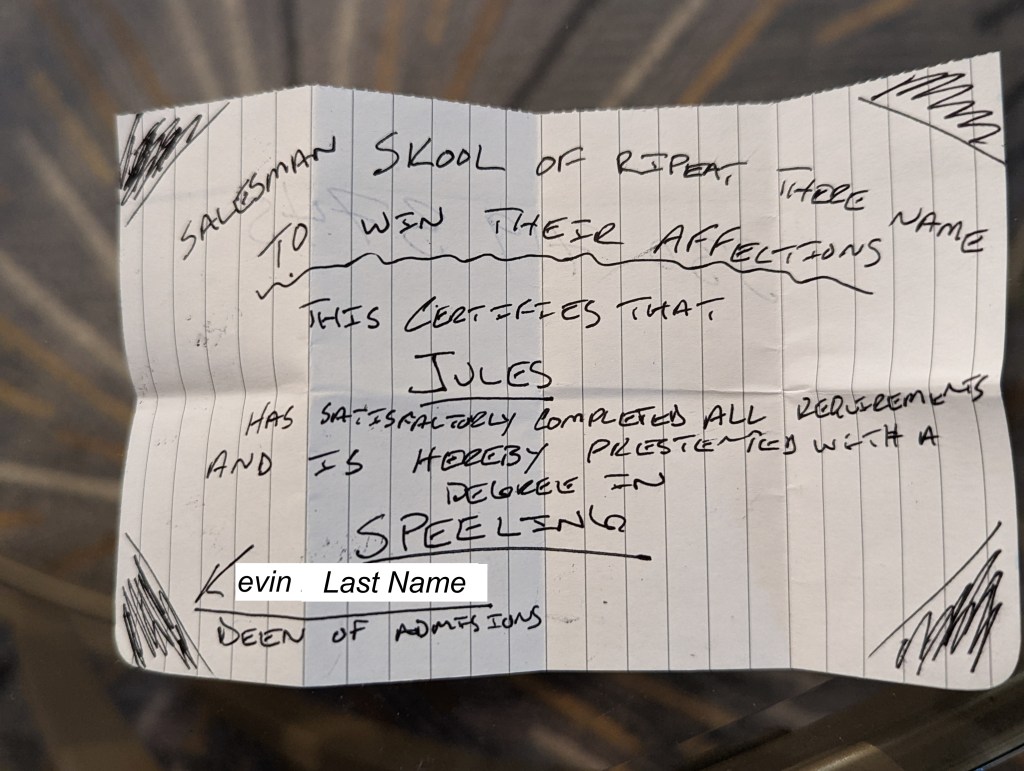 SALESMAN SKOOL OF RIPEAT THERE NAME
TO WIN THEIR AFFECTIONS
THIS CERTIFIES THAT
JULES
HAS SATISFACTORLY COMPLETED ALL REQUIREMENTS
AND IS HEREBY PRESTENTED WITH A
DEGREE IN
SPEELING
Kevin Last Name
DEEN OF ADMISIONS